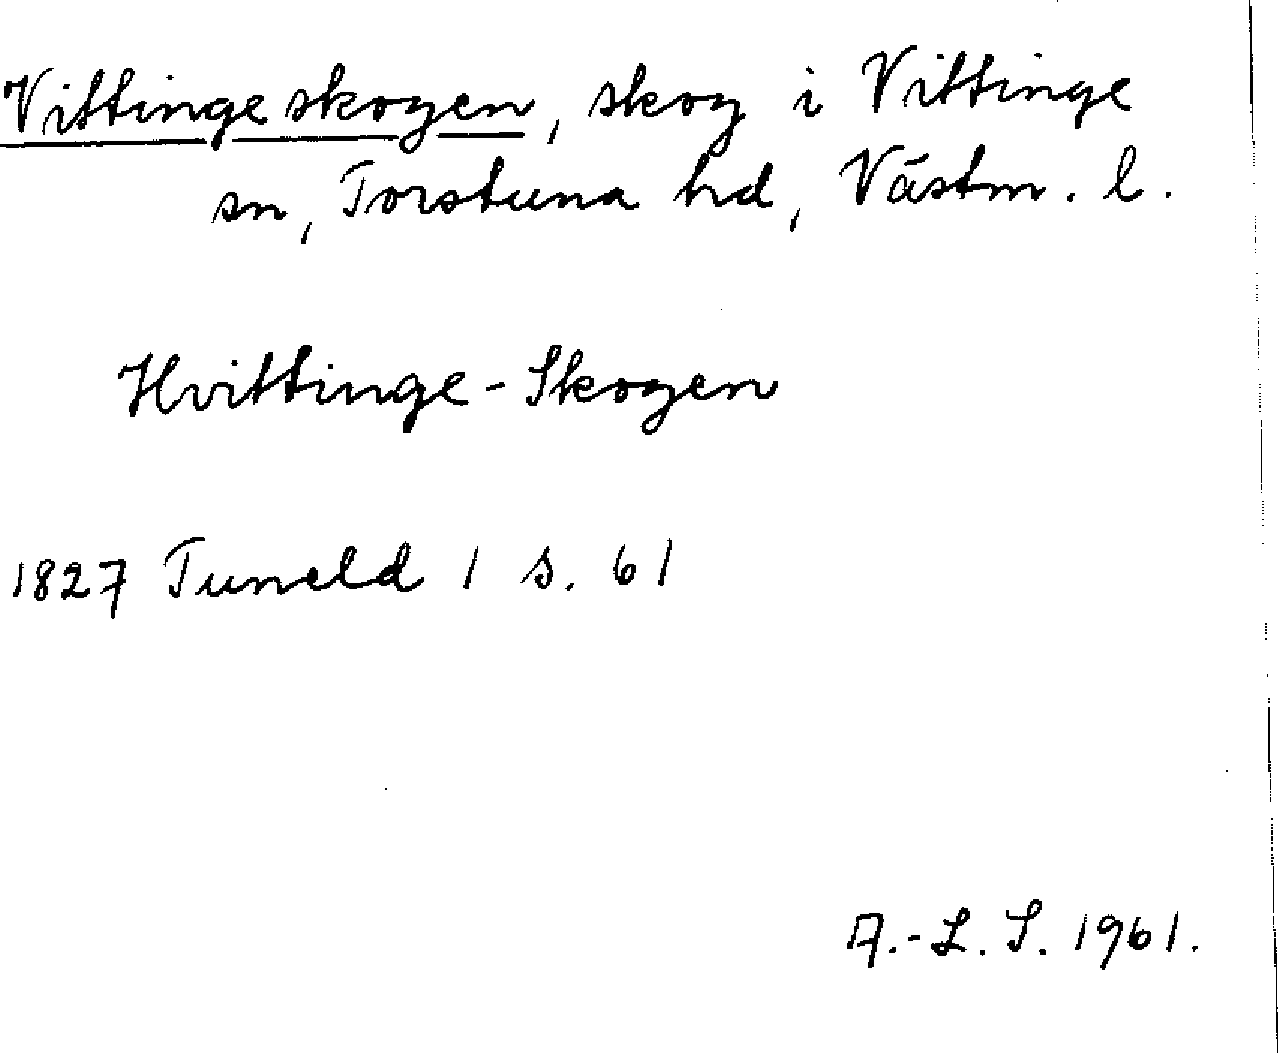 Vittingeskogen, skog i Vittinge
sn, Torstuna hd, Västm. l.
Hvittinge-Skogen
1827 Tuneld 1 s. 61
A.-L. S. 1961.